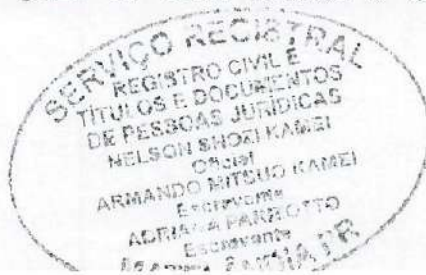 SERVIÇO REGISTRAL
REGISTRO CIVIL E
TÍTULOS E DOCUMENTOS
DE PESSOAS JURÍDICAS
NELSON SHOZI KAMEI
Oficial
ARMANDO MITSUO KAMEI
Escrevente
ADRIANA
Escrevente
PR